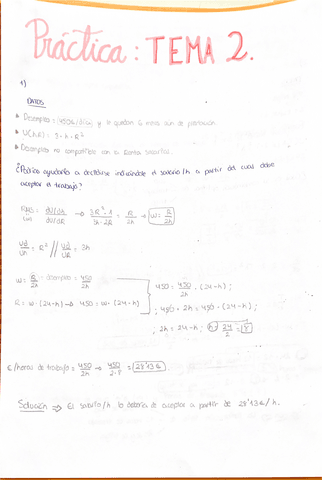 Práctica: TEMA 2.
1)
DATOS
• Desempleo: (450€/día) y le quedan 6 meses aún de
• U(h,R):
• Desempleo no compatible con la Renta salarial.
¿Podrías ayudarlo a decidirse indicándole el salario/h a partir del cual debe
aceptar el trabajo?
= R² // = 3h
w = R/2h → desempleo = 450/2h
R = w · (24-h) → 450 = w · (24-h)
450 = 450/2h · (24-h) ;
; 450 · 2h = 450 · (24-h) ;
; 2h = 24-h ; h = 24/2 = 8
€/horas de trabajo = 450/2h → 450/2·8 = 28'13€
Solución → El salario/h lo debería de aceptar a partir de 28'13€/h.